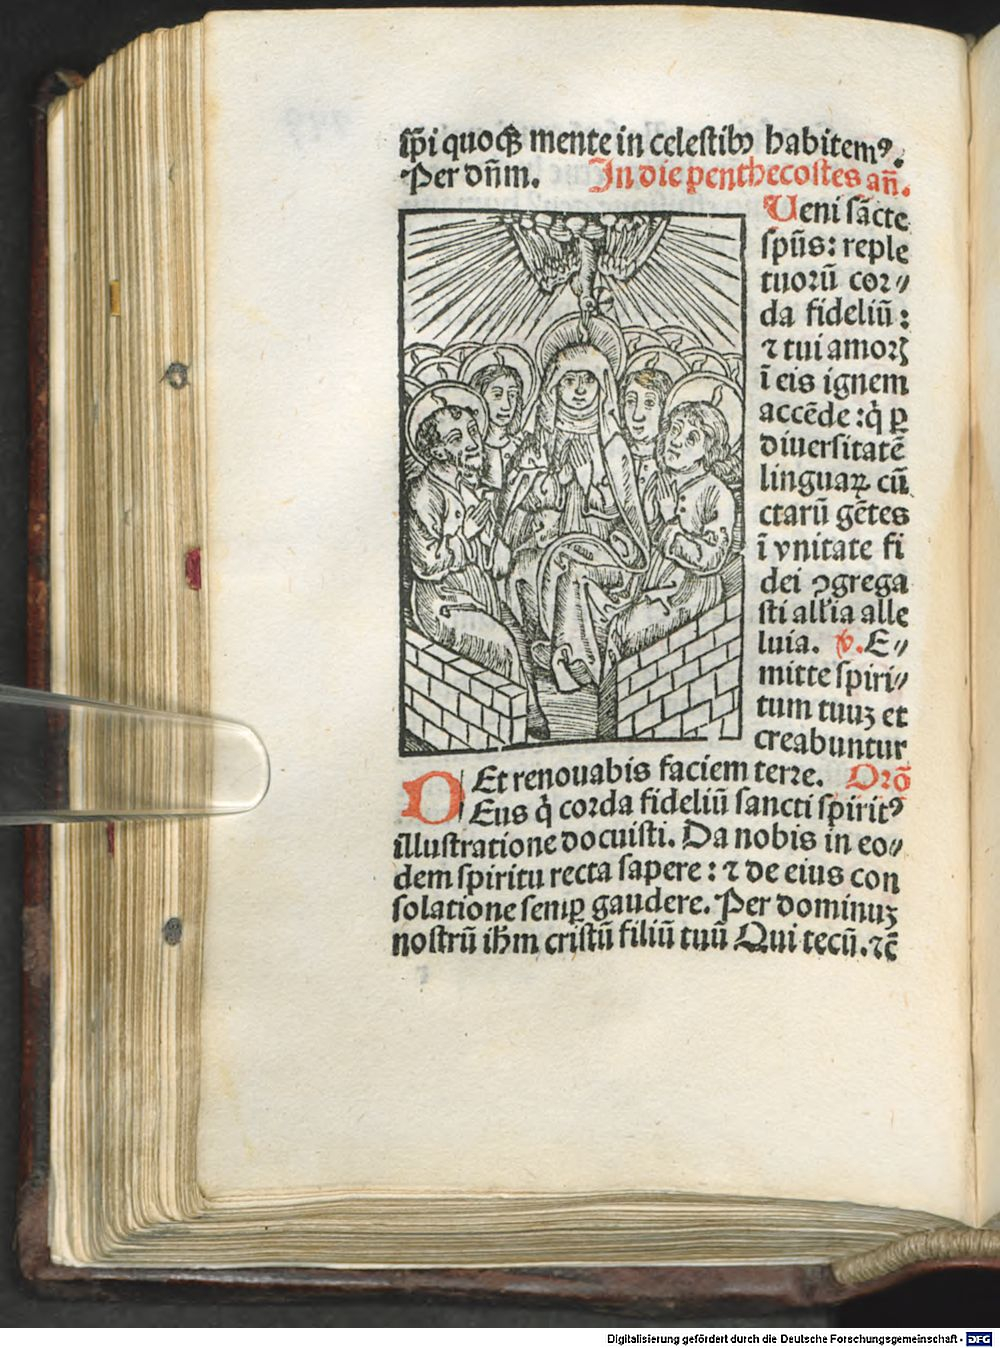 ip̄i quoqꝫ mente in celestibꝰ habitemꝰ.
Per dn̄m. In die penthecostes an̄.
Ueni sācte
spūs: reple
tuorū cor⸗
da fideliū:
⁊ tui amorꝭ
ī eis ignem
accēde: q̇ ꝑ
diuersitatē
linguaꝝ cū
ctarū gētes
ī vnitate fi
dei ꝯgrega
sti all'ia alle
luia. v. E⸗
mitte spiri⸗
tum tuuꝫ et
creabuntur
Et renouabis faciem terre. Orō
DEus q̇ corda fideliū sancti spiritꝰ
illustratione docuisti. Da nobis in eo⸗
dem spiritu recta sapere: ⁊ de eius con
solatione semꝑ gaudere. Per dominuꝫ
nostrū ihm̄ cristū filiū tuū Qui tecū. ⁊c̄
Digitalisierung gefördert durch die Deutsche Forschungsgemeinschaft - DFG